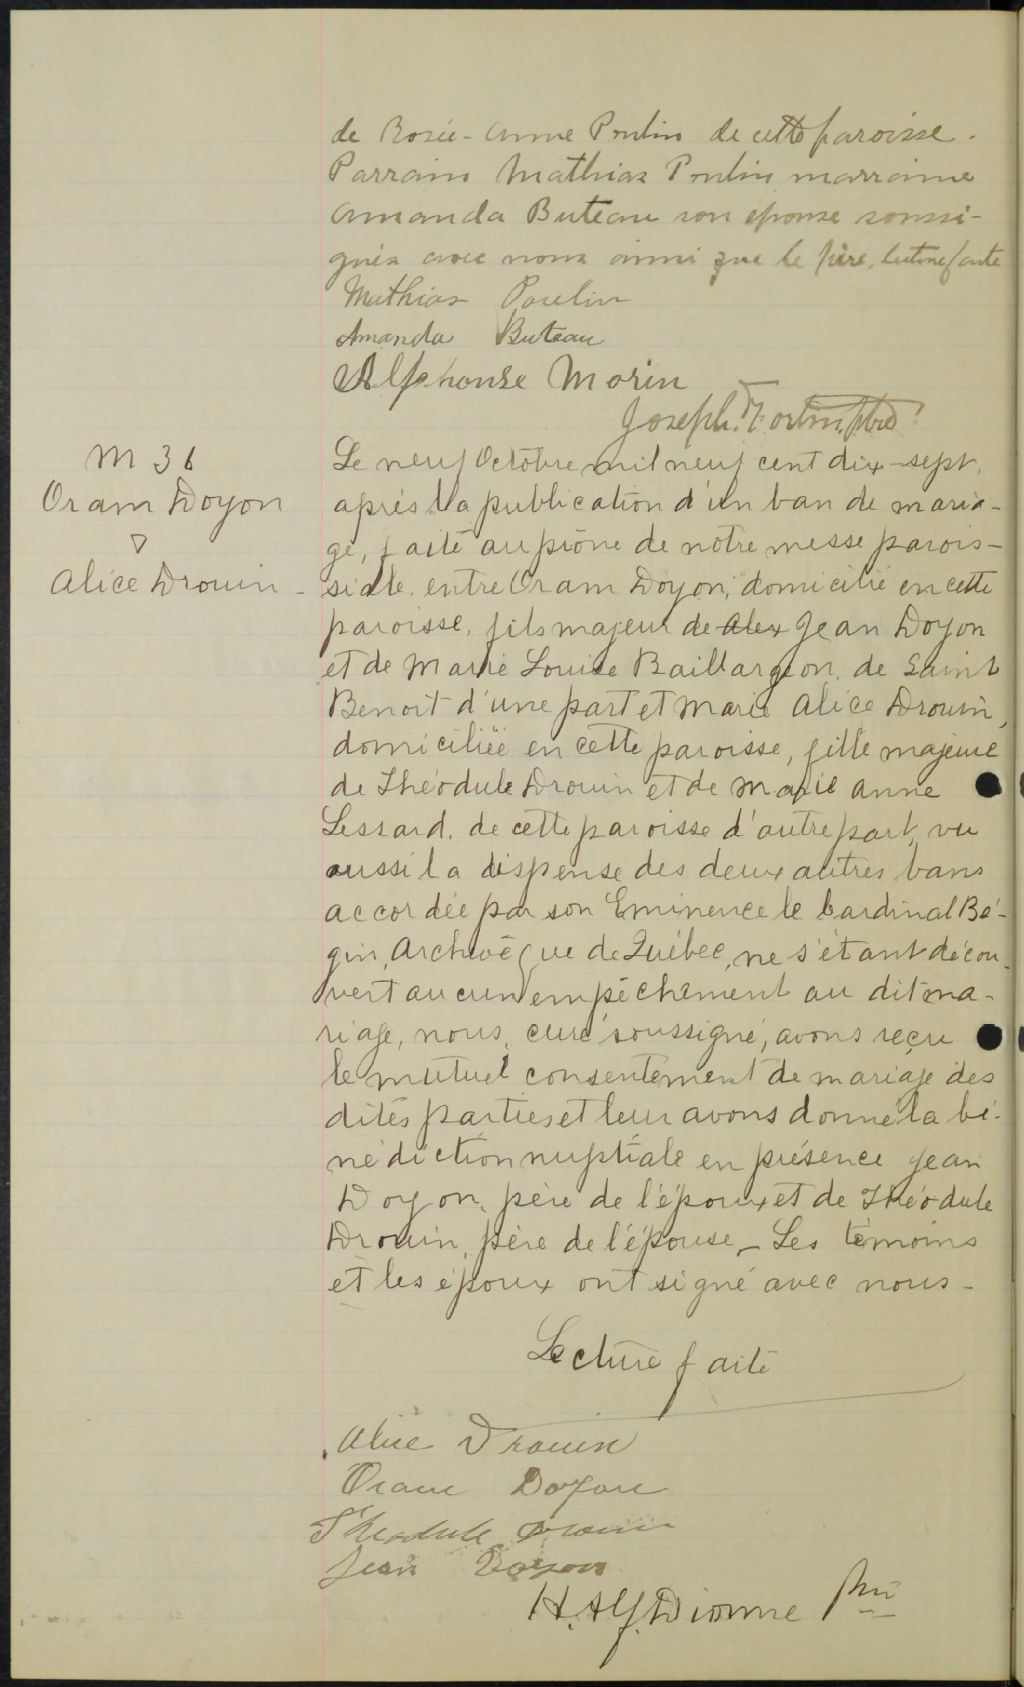 de Rosée-Anne Poulin de cette paroisse.
Parrain Mathias Poulin marraine
Amanda Buteau son épouse soussi-
gnés avec nous ainsi que le père. lecture faite
Mathias Poulin
Amanda Buteau
Alphonse Morin
Joseph. Fortin. ptre
M 36
Oram Doyon
&
Alice Drouin -
Le neuf Octobre mil neuf cent dix-sept,
après la publication d'un ban de maria-
ge, faite au prône de notre messe parois-
siale. entre Oram Doyon, domicilié en cette
paroisse, fils majeur de Alex Jean Doyon
et de Marie Louise Baillargeon, de Saint
Benoit d'une part et Marie Alice Drouin,
domiciliée en cette paroisse, fille majeure
de Théodule Drouin et de Marie Anne
Lessard. de cette paroisse d'autre part, vu
aussi la dispense des deux autres bans
accordée par son Eminence le Cardinal Bé-
gin, Archevêque de Québec, ne s'étant décou-
vert aucun empêchement au dit ma-
riage, nous, curé soussigné, avons reçu
le mutuel consentement de mariage des
dites parties et leur avons donné la bé-
nédiction nuptiale en présence Jean
Doyon, père de l'époux et de Théodule
Drouin, père de l'épouse - Les témoins
et les époux ont signé avec nous -
Lecture faite
Alice Drouin
Oram Doyon
Théodule Drouin
Jean Doyon
H. Alf. Dionne Ptre